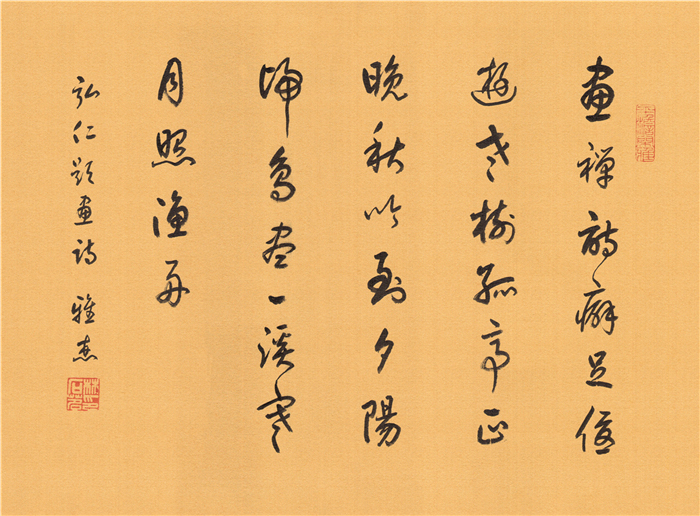 畫禪詩癖足優
遊老樹孤亭正
晚秋吟到夕陽
歸鳥盡一溪寒
月照漁舟
弘仁題畫詩 雅杰